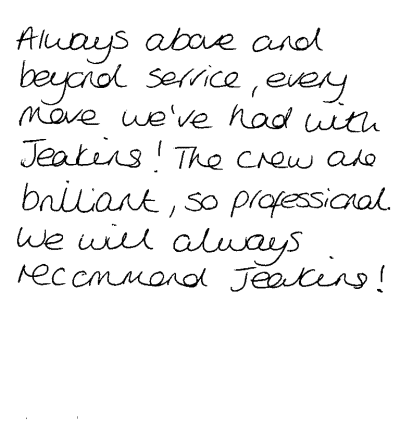 Always above and
beyond service, every
move we've had with
Jeakins! The crew are
brilliant, so professional.
We will always
recommend Jeakins!